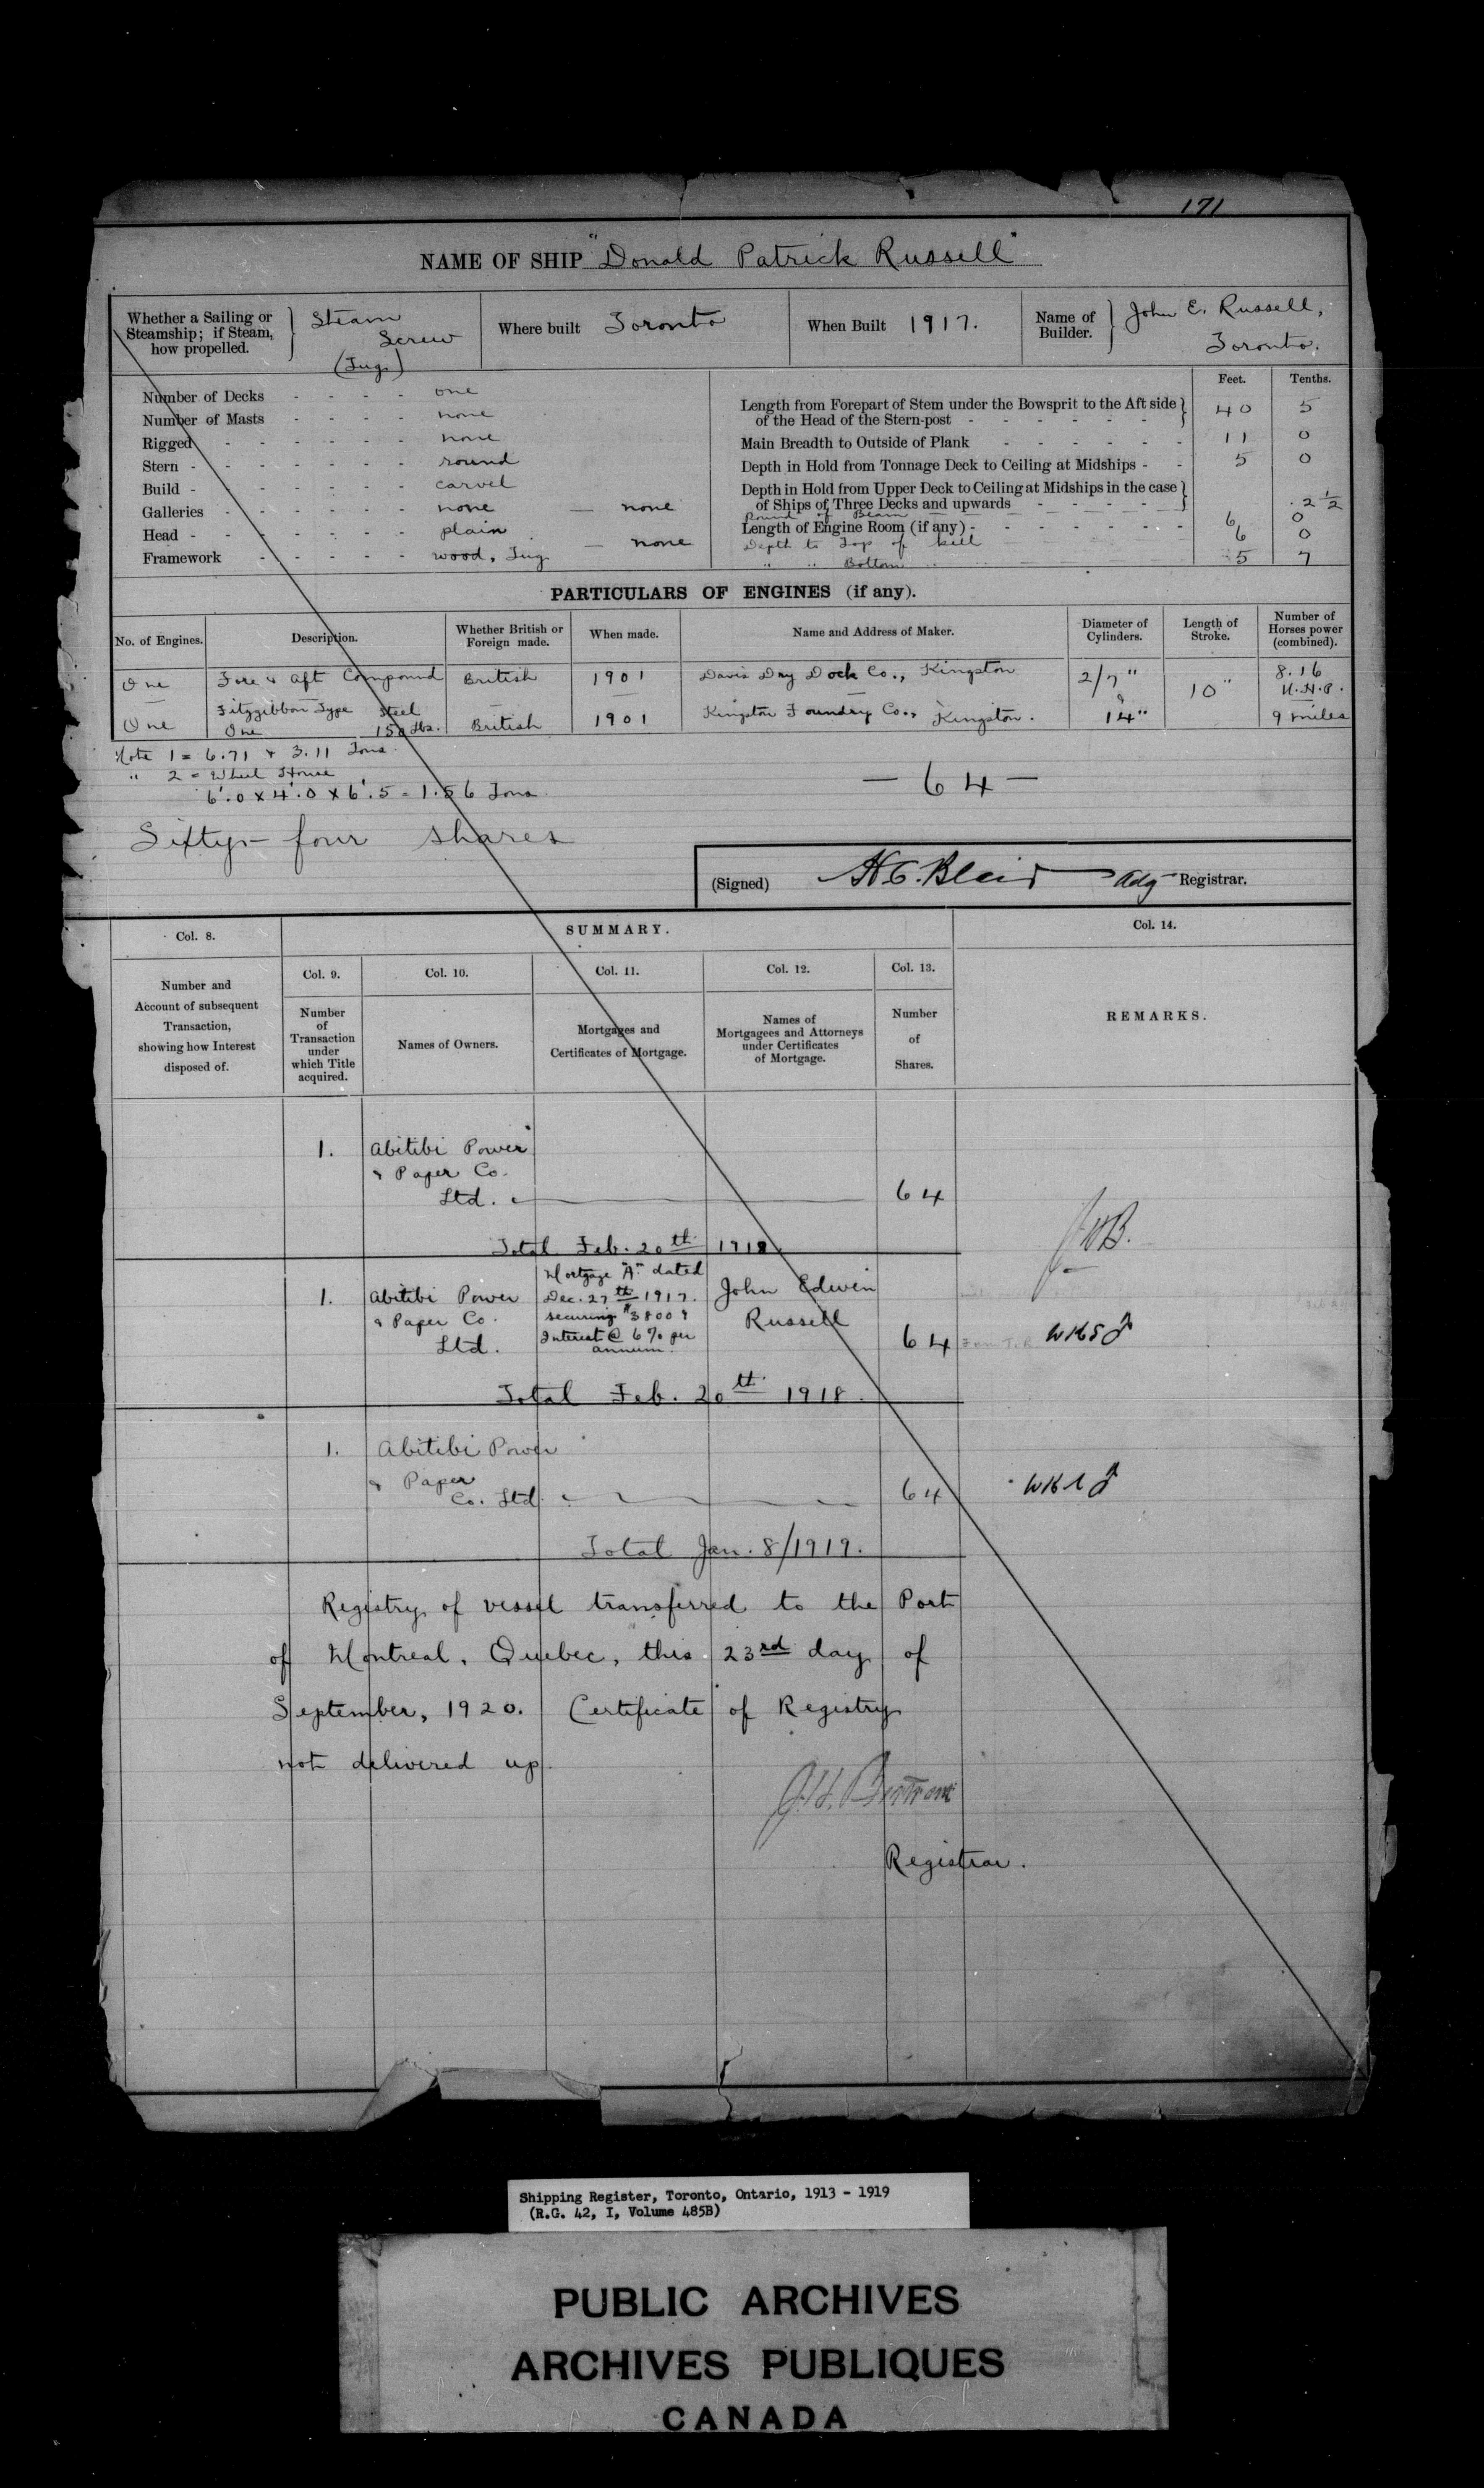 171
NAME OF SHIP "Donald Patrick Russell"
Whether a Sailing or Steamship; if Steam, how propelled. Steam Screw (Tug)
Where built Toronto
When Built 1917.
Name of Builder. John E. Russell, Toronto.
Feet. Tenths.
Number of Decks - - - - one
Number of Masts - - - - none
Rigged - - - - - - none
Stern - - - - - - - round
Build - - - - - - - carvel
Galleries - - - - - - none — none
Head - - - - - - - plain — none
Framework - - - - - wood, Tug
Length from Forepart of Stem under the Bowsprit to the Aft side of the Head of the Stern-post - - - - - - 40 5
Main Breadth to Outside of Plank - - - - - - 11 0
Depth in Hold from Tonnage Deck to Ceiling at Midships - - 5 0
Depth in Hold from Upper Deck to Ceiling at Midships in the case of Ships of Three Decks and upwards - - - - -
Round of Beam .2 1/2
Length of Engine Room (if any) - - - - - - - 6 0
Depth to Top of kell 6 0
" " Bottom 5 7
PARTICULARS OF ENGINES (if any).
No. of Engines. Description. Whether British or Foreign made. When made. Name and Address of Maker. Diameter of Cylinders. Length of Stroke. Number of Horses power (combined).
One Fore & Aft Compound British 1901 Davis Dry Dock Co., Kingston 2/7" 10" 8.16 N.H.P.
One Fitzgibbon Type Steel One 150 lbs. British 1901 Kingston Foundry Co., Kingston. & 14" 9 miles
Note 1 = 6.71 & 3.11 Tons.
" 2 = Wheel House
6'.0 x 4'.0 x 6'.5 = 1.56 Tons.
— 64 —
Sixty-four shares
(Signed) H.C. Blair Adg Registrar.
Col. 8. SUMMARY. Col. 14.
Number and Account of subsequent Transaction, showing how Interest disposed of.
Col. 9. Col. 10. Col. 11. Col. 12. Col. 13.
Number of Transaction under which Title acquired.
Names of Owners.
Mortgages and Certificates of Mortgage.
Names of Mortgagees and Attorneys under Certificates of Mortgage.
Number of Shares.
REMARKS.
1. Abitibi Power
& Paper Co.
Ltd. 64
Total Feb. 20th 1918.
1. Abitibi Power
& Paper Co.
Ltd.
Mortgage "A" dated
Dec. 27th 1917.
securing $3800 &
Interest @ 6% per
annum.
John Edwin
Russell
64
Total Feb. 20th 1918.
1. Abitibi Power
& Paper
Co. Ltd. 64
Total Jan. 8/1919.
Registry of vessel transferred to the Port
of Montreal, Quebec, this 23rd day of
September, 1920. Certificate of Registry
not delivered up.
Registrar.
Shipping Register, Toronto, Ontario, 1913 - 1919
(R.G. 42, I, Volume 485B)
PUBLIC ARCHIVES
ARCHIVES PUBLIQUES
CANADA